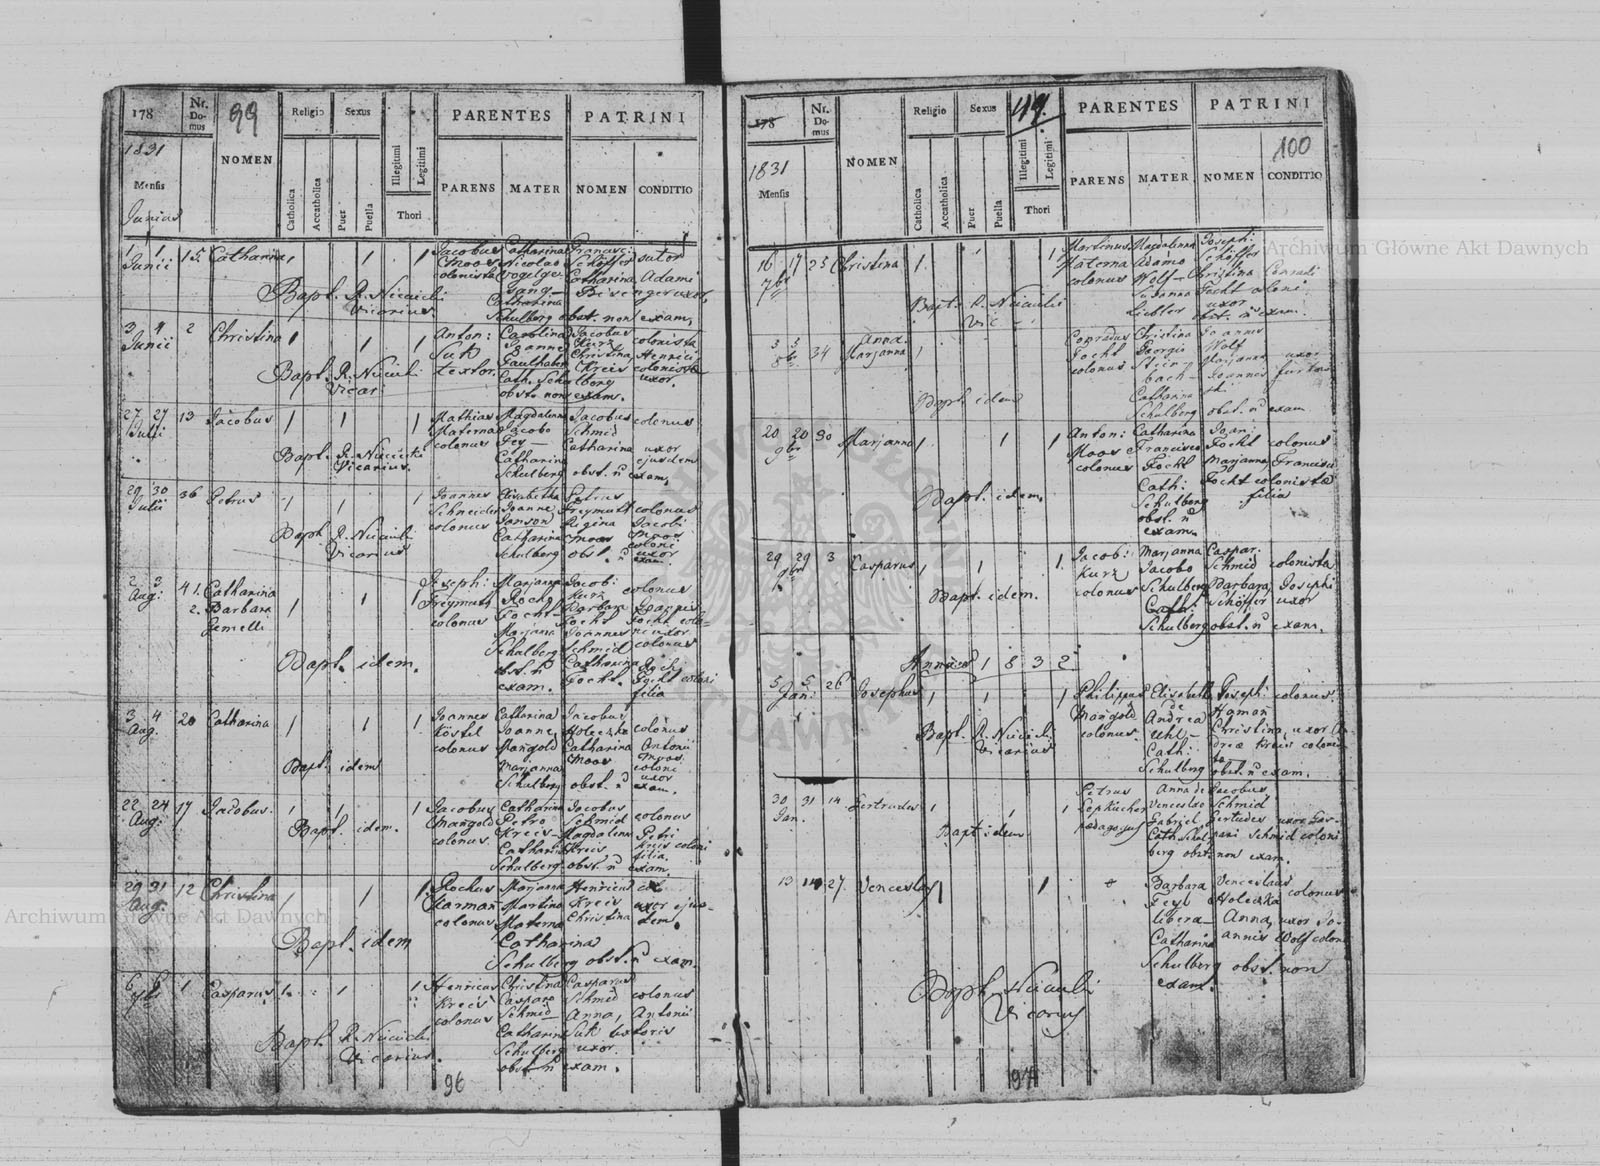 178
Nr. Do- mus
99
Religio
Sexus
PARENTES
PATRINI
1831
NOMEN
Mensis
Catholica
Accatholica
Puer
Puella
Illegitimi
Legitimi
Thori
PARENS
MATER
NOMEN
CONDITIO
Junius
1 1 15. Catharina 1 1 1 Jacobus Catharina Francisc: sutor
Junii Moos Nicolao Schöffer
colonista Catharina Adami
Bapt. R. Vicarius. Catharina uxor,
Schulberg obst. non exam.
3 4 2 Christina 1 1 1 Anton: Carolina Jacobus colonista
Junii Suk Joanne Kurz
textor. Christina Henrici
Bapt. R. Vicari Kreis colonista
Cath. Schulberg uxor.
obst. non exam.
27 27 13 Jacobus 1 1 1 Mathias Magdalena Jacobus colonus
Julii Materna Jacobo Schmid
colonus Fey — Catharina uxor
Bapt. R. Vicarius. Catharina ejusdem
Schulberg obst. ñ exam.
29 30 36 Petrus 1 1 1 Joannes Elisabetha Petrus
Julii Schneider Joanne Freymuth colonus
colonus Janson Regina Jacobi
Bapt. R. Vicarius Catharina Moos Moos
coloni
Schulberg obst. ñ uxor
exam.
2 3 4 1. Catharina Joseph: Marjanna Jacob: colonus
Aug: 2. Barbara 1 1 1 Freymuth Rocho Kurz
Gemelli colonus Focht — Barbara Joannis
Marjanna Focht Focht colo-
Schulberg Joannes ni uxor
Bapt. idem. obst. ñ Schmid colonus
exam. Catharina Rochi
Focht. Focht coloni
filia
3 4 20 Catharina 1 1 1 Joannes Catharina Jacobus
Aug. Köstel Joanne Holeczka colonus
colonus Mangold Catharina Antonii
Bapt. idem Marjanna Moos Moos
coloni
Schulberg obst. ñ uxor
exam.
22 24 17 Jacobus. 1 1 1 Jacobus Catharina Jacobus
Aug: Mangold Petro Schmid colonus
colonus. Kreis — Magdalena Petri
Bapt. idem. Catharina Kreis Kreis coloni
filia.
Schulberg obst. ñ exam.
29 31 12 Christina 1 1 1 Rochus Marjanna Henricus col
Aug: Harman Martino Kreis uxor ejus-
colonus Materna Christina dem.
Bapt. idem Catharina
Schulberg obst. ñ exam.
6 6 1 Casparus 1 1 1 Henricus Christina Casparus
7br Kreis Casparo Schmid colonus
colonus Schmid — Anna, Antonii
Bapt. R. Vicarius. Catharina Suk textoris
Schulberg uxor.
obst. ñ exam.
96
178
Nr. Do- mus
Religio
Sexus
49.
PARENTES
PATRINI
1831
NOMEN
100
Mensis
Catholica
Accatholica
Puer
Puella
Illegitimi
Legitimi
Thori
PARENS
MATER
NOMEN
CONDITIO
16 17 25 Christina 1 1 1 Martinus Magdalena Joseph:
7br Materna Adamo Schöffer
colonus Wolf — Christina Conradi
Susanna Focht coloni
Bapt. R. Vic — Liebler uxor
obst. ñ exam.
3 3 34 Anna Marjanna 1 Conradus Christina Joannes
8br Focht Georgio Wolf
colonus Marjanna uxor
Bapt. idem Catharina Joannis
Schulberg obst. ñ exam
20 20 30 Marjanna 1 1 1 Anton: Catharina Joan:
9br Moos Francisco Focht colonus
colonus Focht Marjanna Francisci
Cath: Focht colonista
Bapt. idem. Schulberg filia
obst. ñ
exam.
29 29 3 Casparus 1 1 1. Jacob: Marjanna Caspar:
9br Kurz Jacobo Schmid colonista
colonus Schulberg Barbara, Josephi
Bapt. idem. Cath: Schöffer uxor
Schulberg obst. ñ exam.
Annus 1832
5 5 26 Josephus 1 1 1 Philippus Elisabeth Joseph: colonus.
Jan: Mangold de Haman
colonus. Andrea Christina, uxor An-
Bapt. R. Vicarius Uhl — dreæ Kreis coloni
Cath:
Schulberg obst. ñ exam.
30 31 14. Gertrudes 1 1 1 Petrus Anna de Jacobus
Jan. Venceslao Schmid
pædagogus Gabriel Gertrudes uxor Gas-
Bapt idem Cath: Schul- pari Schmid coloni
berg obst: non exam.
13 14 27. Venceslaus 1 1 Barbara Venceslaus
Feyl Holeczka colonus
libera — Anna, uxor Jo-
Catharina annis Wolf coloni
Schulberg obst. non
exam.
Bapt. Vicarius
97
Archiwum Główne Akt Dawnych
Archiwum Główne Akt Dawnych